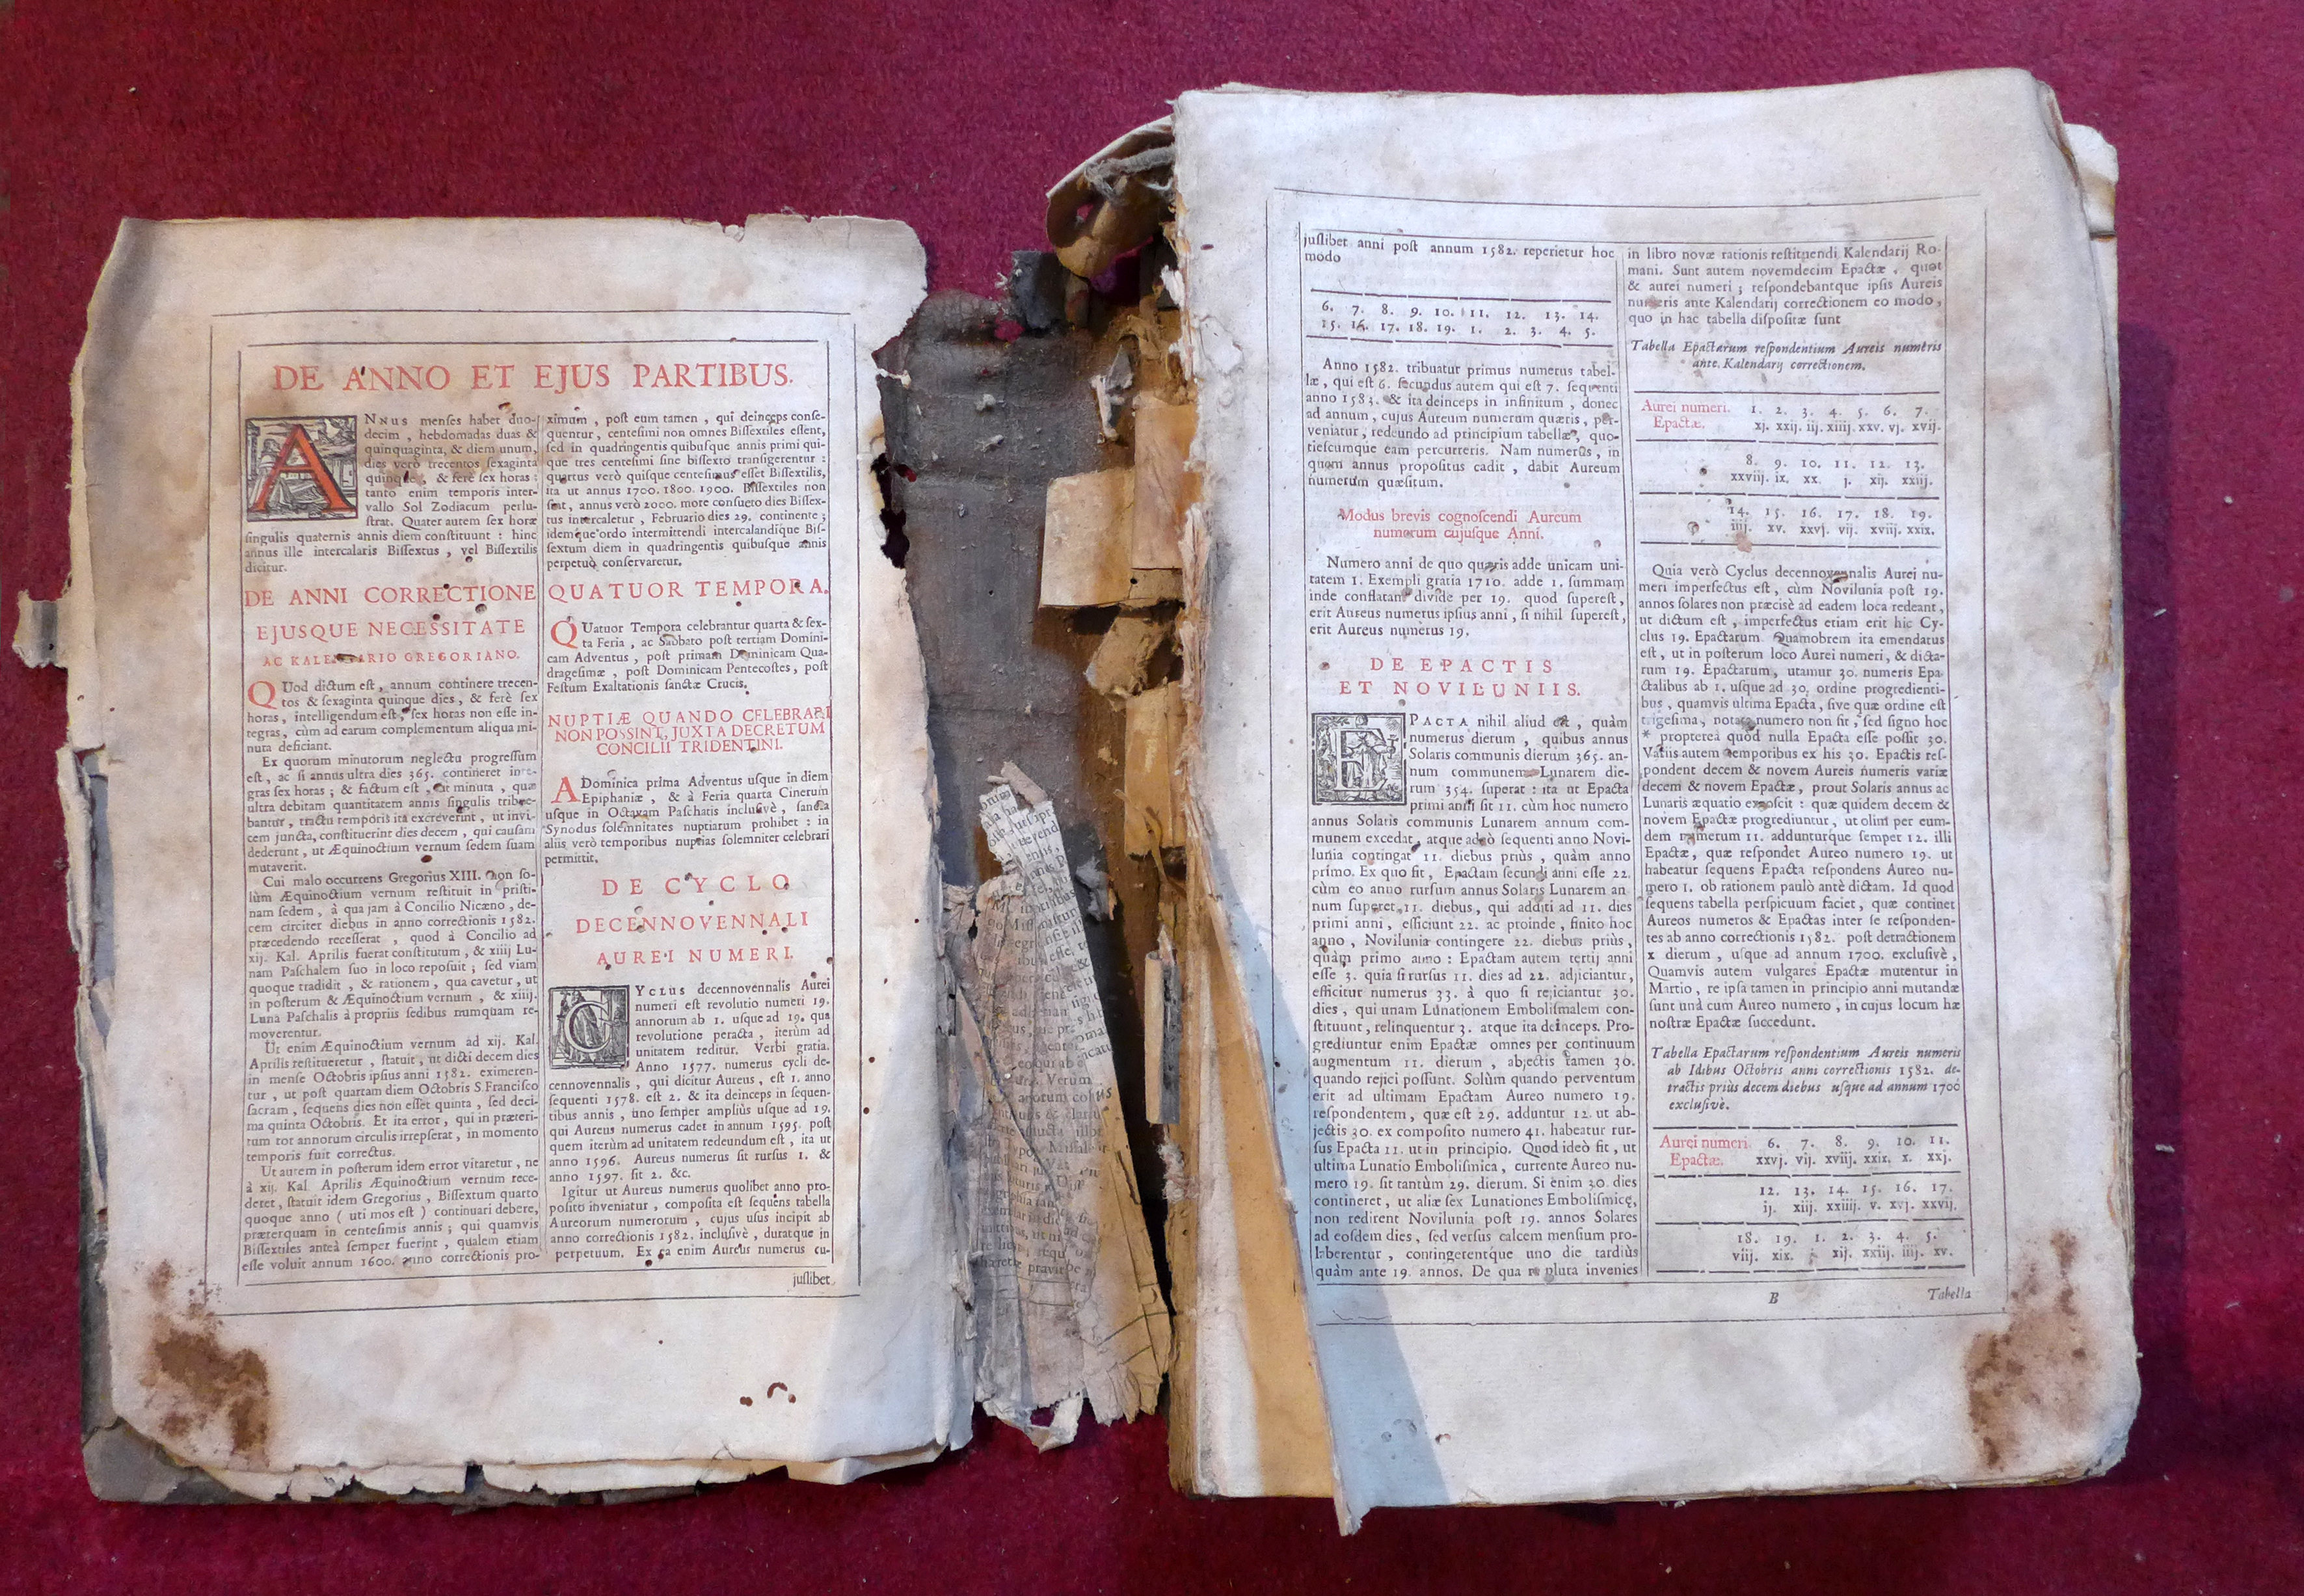 DE ANNO ET EJUS PARTIBUS.
ANNUS menses habet duo-
decim, hebdomadas duas &
quinquaginta, & diem unum,
dies verò trecentos sexaginta
quinque, & ferè sex horas:
tanto enim temporis inter-
vallo Sol Zodiacum perlu-
strat. Quater autem sex horæ
singulis quaternis annis diem constituunt: hinc
annus ille intercalaris Bissextus, vel Bissextilis
dicitur.
DE ANNI CORRECTIONE
EJUSQUE NECESSITATE
AC KALENDARIO GREGORIANO.
QUod dictum est, annum continere trecen-
tos & sexaginta quinque dies, & ferè sex
horas, intelligendum est, sex horas non esse in-
tegras, cùm ad earum complementum aliqua mi-
nuta deficiant.
Ex quorum minutorum neglectu progressum
est, ac si annus ultra dies 365. contineret inte-
gras sex horas; & factum est, ut minuta, quæ
ultra debitam quantitatem annis singulis tribue-
bantur, tractu temporis ità excreverint, ut invi-
cem juncta, constituerint dies decem, qui causam
dederunt, ut Æquinoctium vernum sedem suam
mutaverit.
Cui malo occurrens Gregorius XIII. non so-
lùm Æquinoctium vernum restituit in pristi-
nam sedem, à qua jam à Concilio Nicæno, de-
cem circiter diebus in anno correctionis 1582.
præcedendo recesserat, quod à Concilio ad
xij. Kal. Aprilis fuerat constitutum, & xiiij Lu-
nam Paschalem suo in loco reposuit; sed viam
quoque tradidit, & rationem, qua cavetur, ut
in posterum & Æquinoctium vernum, & xiiij.
Luna Paschalis à propriis sedibus numquam re-
moverentur.
Ut enim Æquinoctium vernum ad xij. Kal.
Aprilis restitueretur, statuit, ut dicti decem dies
in mense Octobris ipsius anni 1582. eximeren-
tur, ut post quartam diem Octobris S. Francisco
sacram, sequens dies non esset quinta, sed deci-
ma quinta Octobris. Et ita error, qui in præteri-
tum tot annorum circulis irrepserat, in momento
temporis fuit correctus.
Ut autem in posterum idem error vitaretur, ne
à xij. Kal. Aprilis Æquinoctium vernum rece-
deret, statuit idem Gregorius, Bissextum quarto
quoque anno (uti mos est) continuari debere,
præterquam in centesimis annis; qui quamvis
Bissextiles anteà semper fuerint, qualem etiam
esse voluit annum 1600. anno correctionis pro-
ximum, post eum tamen, qui deinceps conse-
quentur, centesimi non omnes Bissextiles essent,
sed in quadringentis quibusque annis primi qui-
que tres centesimi sine bissexto transigerentur:
quartus verò quisque centesimus esset Bissextilis,
ita ut annus 1700. 1800. 1900. Bissextiles non
sint, annus verò 2000. more consueto dies Bissex-
tus intercaletur, Februario dies 29. continente;
idemque ordo intermittendi intercalandique Bis-
sextum diem in quadringentis quibusque annis
perpetuò conservaretur.
QUATUOR TEMPORA.
QUatuor Tempora celebrantur quarta & sex-
ta Feria, ac Sabbato post tertiam Domini-
cam Adventus, post primam Dominicam Qua-
dragesimæ, post Dominicam Pentecostes, post
Festum Exaltationis sanctæ Crucis.
NUPTIÆ QUANDO CELEBRARI
NON POSSINT, JUXTA DECRETUM
CONCILII TRIDENTINI.
A Dominica prima Adventus usque in diem
Epiphaniæ, & à Feria quarta Cinerum
usque in Octavam Paschatis inclusivè, sancta
Synodus solemnitates nuptiarum prohibet: in
aliis verò temporibus nuptias solemniter celebrari
permittit.
DE CYCLO
DECENNOVENNALI
AUREI NUMERI.
CYCLUS decennovennalis Aurei
numeri est revolutio numeri 19.
annorum ab 1. usque ad 19. qua
revolutione peracta, iterùm ad
unitatem reditur. Verbi gratia.
Anno 1577. numerus cycli de-
cennovennalis, qui dicitur Aureus, est 1. anno
sequenti 1578. est 2. & ita deinceps in sequen-
tibus annis, uno semper amplius usque ad 19.
qui Aureus numerus cadet in annum 1595. post
quem iterùm ad unitatem redeundum est, ita ut
anno 1596. Aureus numerus sit rursus 1. &
anno 1597. sit 2. &c.
Igitur ut Aureus numerus quolibet anno pro-
posito inveniatur, composita est sequens tabella
Aureorum numerorum, cujus usus incipit ab
anno correctionis 1582. inclusivè, duratque in
perpetuum. Ex ea enim Aureus numerus cu-
juslibet
juslibet anni post annum 1582. reperietur hoc
modo
6. 7. 8. 9. 10. 11. 12. 13. 14.
15. 16. 17. 18. 19. 1. 2. 3. 4. 5.
Anno 1582. tribuatur primus numerus tabel-
læ, qui est 6. secundus autem qui est 7. sequenti
anno 1583. & ita deinceps in infinitum, donec
ad annum, cujus Aureum numerum quæris, per-
veniatur, redeundo ad principium tabellæ, quo-
tiescumque eam percurreris. Nam numerus, in
quem annus propositus cadit, dabit Aureum
numerum quæsitum.
Modus brevis cognoscendi Aureum
numerum cujusque Anni.
Numero anni de quo quæris adde unicam uni-
tatem 1. Exempli gratia 1710. adde 1. summam
inde conflatam divide per 19. quod superest,
erit Aureus numerus ipsius anni, si nihil superest,
erit Aureus numerus 19.
DE EPACTIS
ET NOVILUNIIS.
EPACTA nihil aliud est, quàm
numerus dierum, quibus annus
Solaris communis dierum 365. an-
num communem Lunarem die-
rum 354. superat: ita ut Epacta
primi anni sit 11. cùm hoc numero
annus Solaris communis Lunarem annum com-
munem excedat, atque adeò sequenti anno Novi-
lunia contingat 11. diebus priùs, quàm anno
primo. Ex quo fit, Epactam secundi anni esse 22.
cùm eo anno rursum annus Solaris Lunarem an-
num superet 11. diebus, qui additi ad 11. dies
primi anni, efficiunt 22. ac proinde, finito hoc
anno, Novilunia contingere 22. diebus priùs,
quàm primo anno: Epactam autem tertij anni
esse 3. quia si rursus 11. dies ad 22. adjiciantur,
efficitur numerus 33. à quo si rejiciantur 30.
dies, qui unam Lunationem Embolismalem con-
stituunt, relinquentur 3. atque ita deinceps. Pro-
grediuntur enim Epactæ omnes per continuum
augmentum 11. dierum, abjectis tamen 30.
quando rejici possunt. Solùm quando perventum
erit ad ultimam Epactam Aureo numero 19.
respondentem, quæ est 29. adduntur 12. ut ab-
jectis 30. ex composito numero 41. habeatur rur-
sus Epacta 11. ut in principio. Quod ideò fit, ut
ultima Lunatio Embolismica, currente Aureo nu-
mero 19. sit tantùm 29. dierum. Si enim 30. dies
contineret, ut aliæ sex Lunationes Embolismicę,
non redirent Novilunia post 19. annos Solares
ad eosdem dies, sed versus calcem mensium pro-
laberentur, contingerentque uno die tardiùs
quàm ante 19. annos. De qua re plura invenies
in libro novæ rationis restituendi Kalendarij Ro-
mani. Sunt autem novemdecim Epactæ, quot
& aurei numeri; respondebantque ipsis Aureis
numeris ante Kalendarij correctionem eo modo,
quo in hac tabella dispositæ sunt
Tabella Epactarum respondentium Aureis numeris
ante Kalendarij correctionem.
Aurei numeri. 1. 2. 3. 4. 5. 6. 7.
Epactæ. xj. xxij. iij. xiiij. xxv. vj. xvij.
8. 9. 10. 11. 12. 13.
xxviij. ix. xx. j. xij. xxiij.
14. 15. 16. 17. 18. 19.
iiij. xv. xxvj. vij. xviij. xxix.
Quia verò Cyclus decennovennalis Aurei nu-
meri imperfectus est, cùm Novilunia post 19.
annos solares non præcisè ad eadem loca redeant,
ut dictum est, imperfectus etiam erit hic Cy-
clus 19. Epactarum. Quamobrem ita emendatus
est, ut in posterum loco Aurei numeri, & dicta-
rum 19. Epactarum, utamur 30. numeris Epa-
ctalibus ab 1. usque ad 30. ordine progredienti-
bus, quamvis ultima Epacta, sive quæ ordine est
trigesima, notata numero non sit, sed signo hoc
* propterea quod nulla Epacta esse possit 30.
Variis autem temporibus ex his 30. Epactis res-
pondent decem & novem Aureis numeris variæ
decem & novem Epactæ, prout Solaris annus ac
Lunaris æquatio exposcit: quæ quidem decem &
novem Epactæ progrediuntur, ut olim per eum-
dem numerum 11. addunturque semper 12. illi
Epactæ, quæ respondet Aureo numero 19. ut
habeatur sequens Epacta respondens Aureo nu-
mero 1. ob rationem paulò antè dictam. Id quod
sequens tabella perspicuum faciet, quæ continet
Aureos numeros & Epactas inter se responden-
tes ab anno correctionis 1582. post detractionem
x dierum, usque ad annum 1700. exclusivè,
Quamvis autem vulgares Epactæ mutentur in
Martio, re ipsa tamen in principio anni mutandæ
sunt unà cum Aureo numero, in cujus locum hæ
nostræ Epactæ succedunt.
Tabella Epactarum respondentium Aureis numeris
ab Idibus Octobris anni correctionis 1582. de-
tractis priùs decem diebus usque ad annum 1700
exclusivè.
Aurei numeri. 6. 7. 8. 9. 10. 11.
Epactæ. xxvj. vij. xviij. xxix. x. xxj.
12. 13. 14. 15. 16. 17.
ij. xiij. xxiiij. v. xvj. xxvij.
18. 19. 1. 2. 3. 4. 5.
viij. xix. j. xij. xxiij. iiij. xv.
B
Tabella